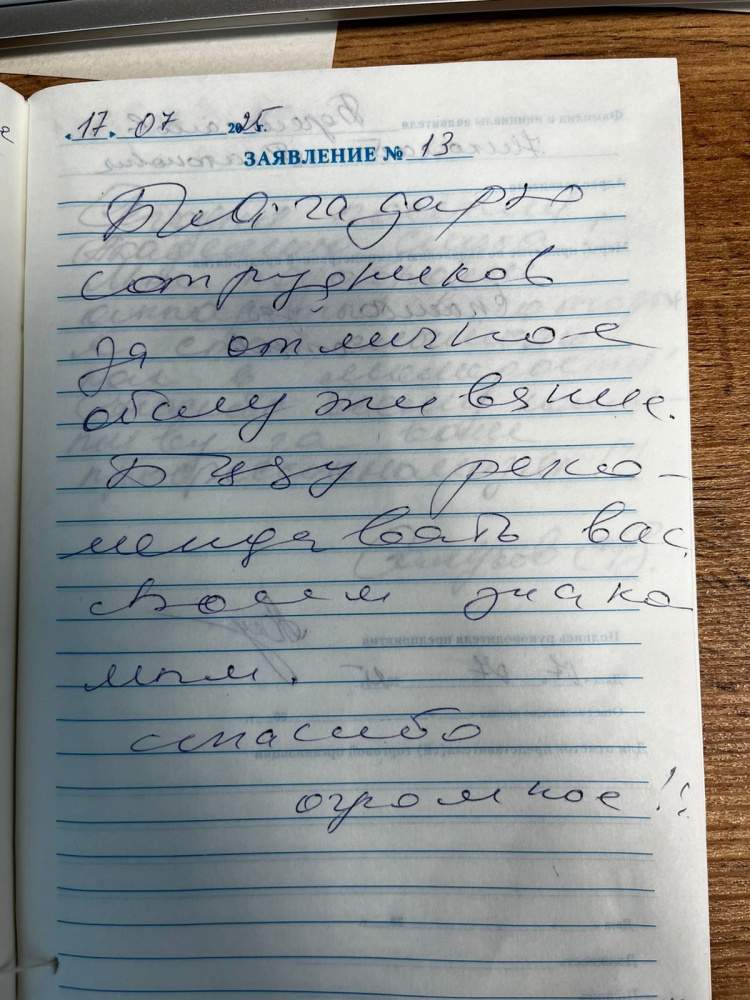 «17» 07 2025г.
ЗАЯВЛЕНИЕ № 13
Благодарю
сотрудников
за отличное
обслуживание.
Буду реко-
мендовать вас
своем знако
мым.
спасибо
огромное!!